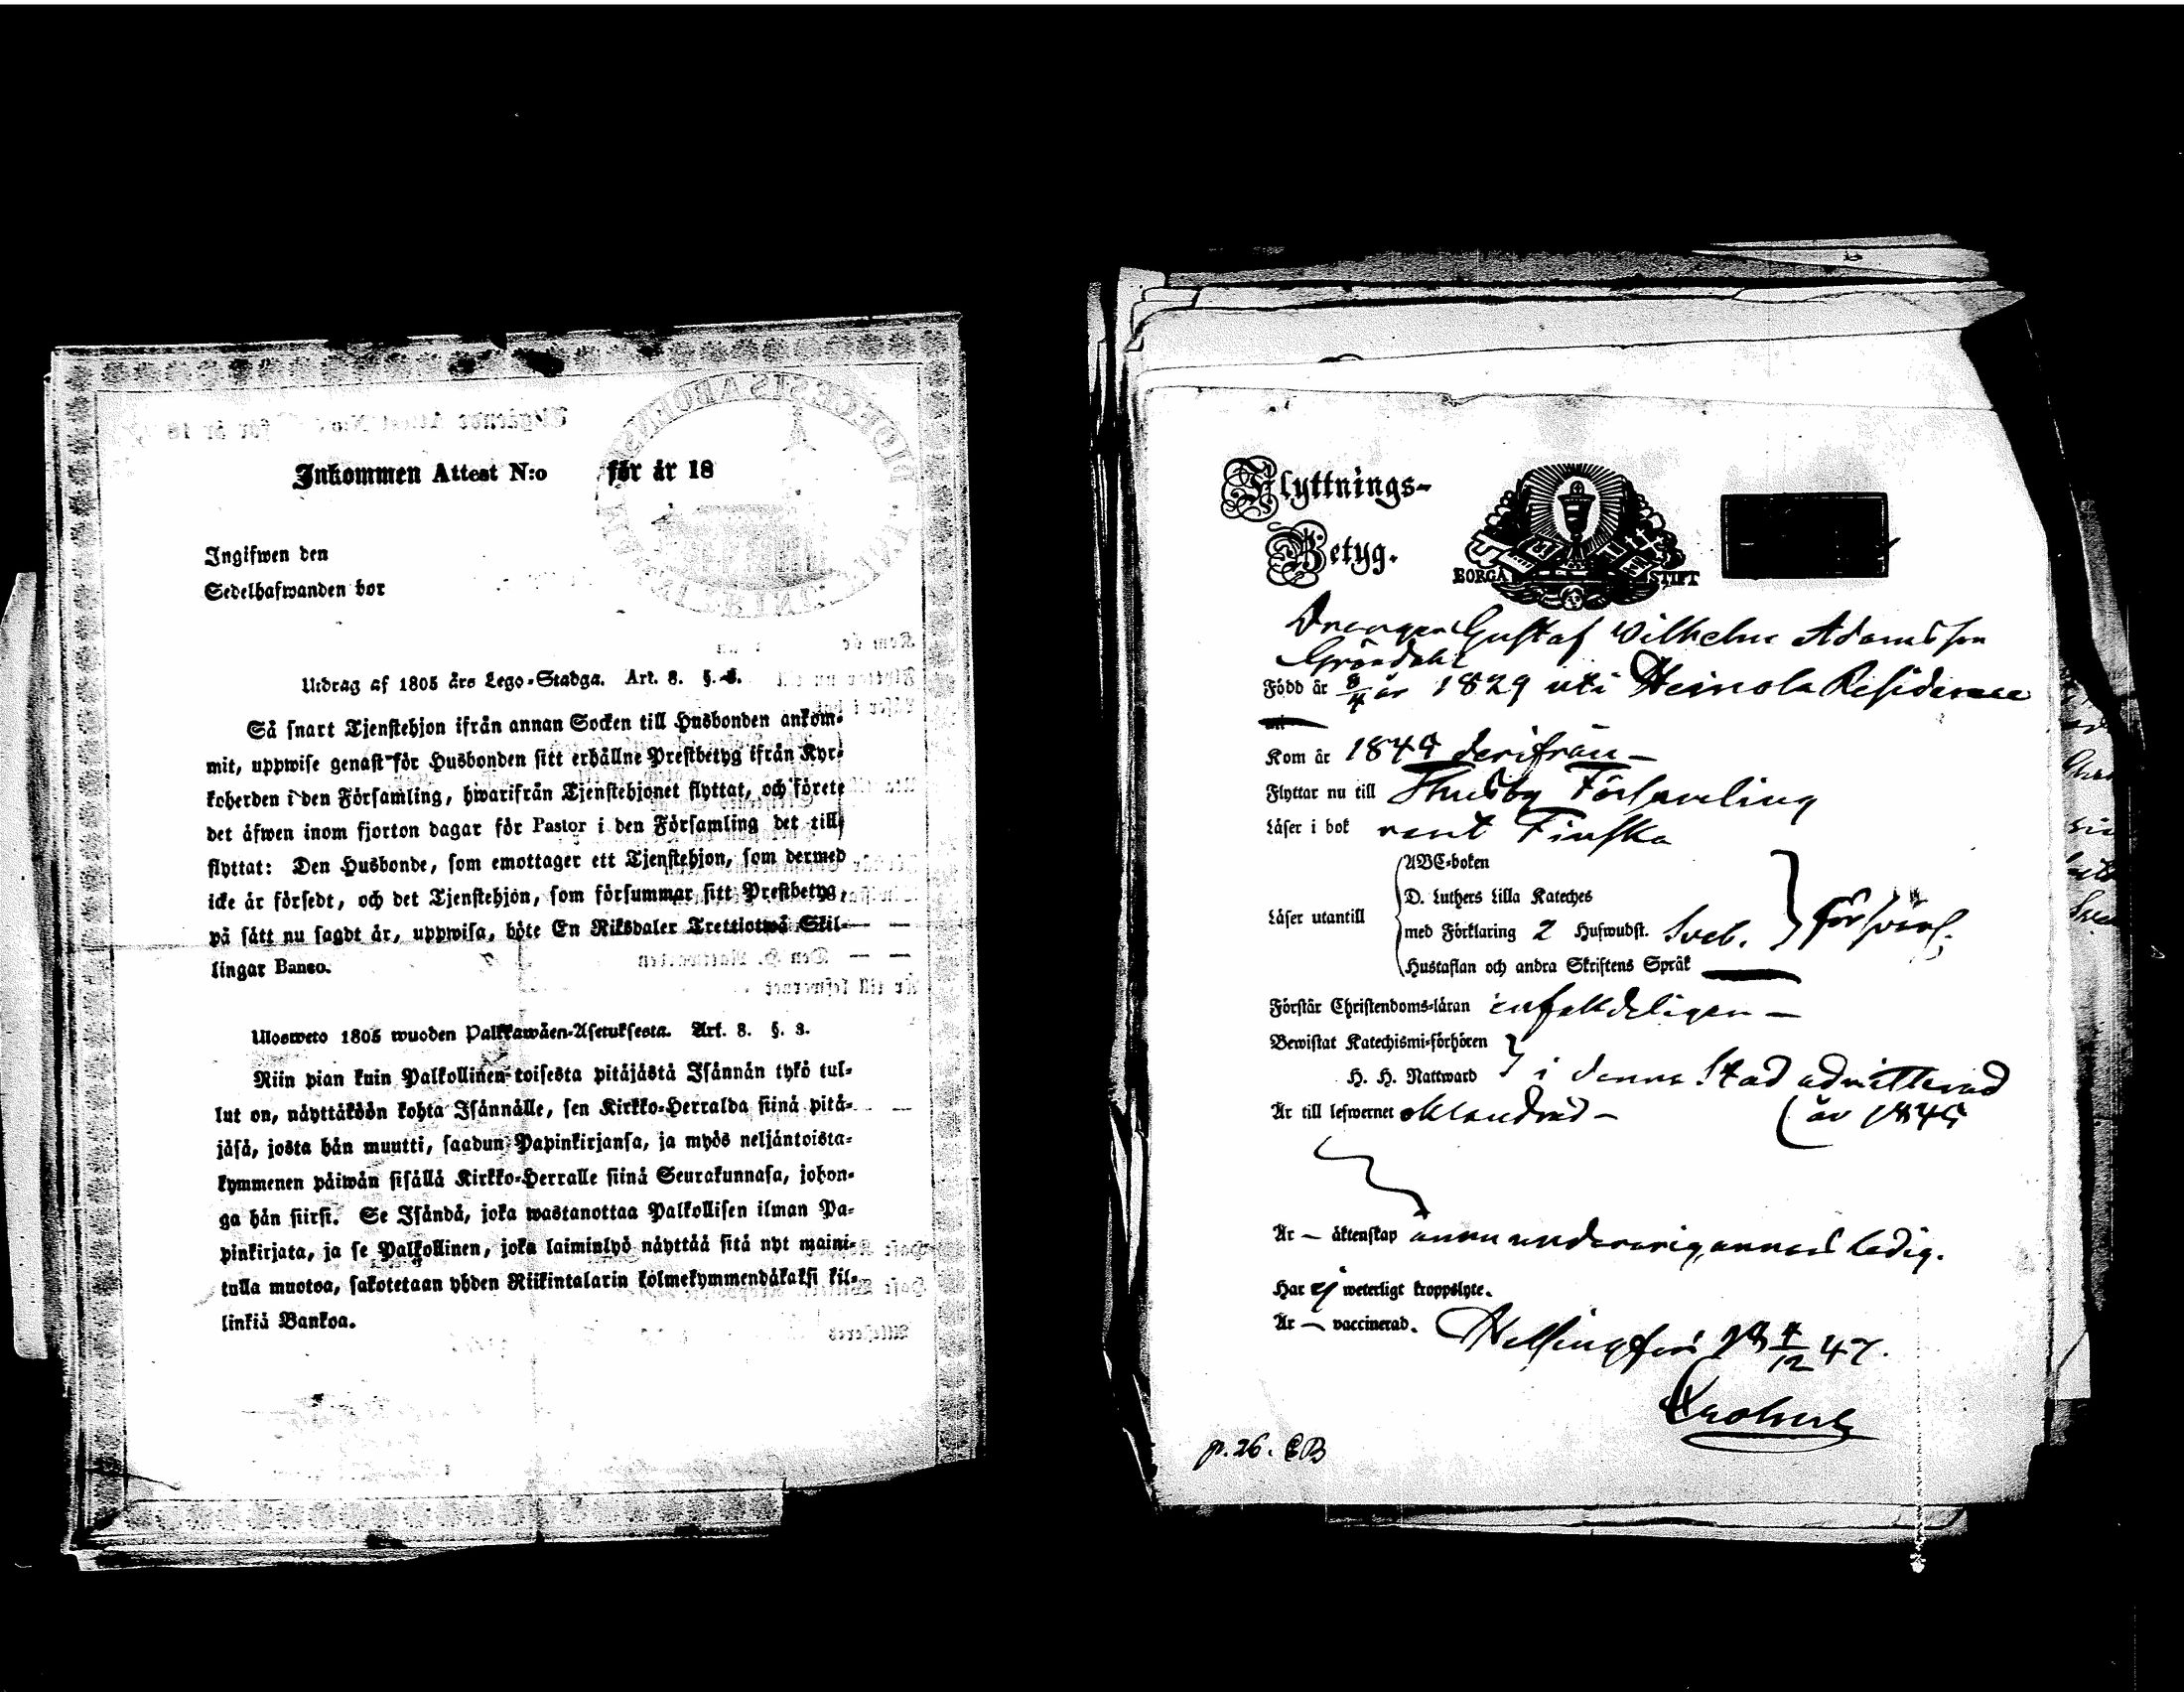 Inkommen Attest N:o för år 18
Ingifwen den
Sedelhafwanden bor
Utdrag af 1805 års Lego-Stadga. Art. 8. §. 3.
Så snart Tjenstehjon ifrån annan Socken till Husbonden ankom-
mit, uppwise genast för Husbonden sitt erhållne Prestbetyg ifrån Kyr-
koherden i den Församling, hwarifrån Tjenstehjonet flyttat, och förete
det äfwen inom fjorton dagar för Pastor i den Församling det till-
flyttat: Den Husbonde, som emottager ett Tjenstehjon, som dermed
icke är försedt, och det Tjenstehjon, som försummar sitt Prestbetyg,
på sätt nu sagdt är, uppwisa, böte En Riksdaler Trettiotwå Skil-
lingar Banco.
Ulosweto 1805 wuoden Palkkawäen-Asetuksesta. Art. 8. §. 3.
Niin pian kuin Palkollinen toisesta pitäjästä Isännän tykö tul-
lut on, näyttäköön kohta Isännälle, sen Kirkko-Herralda siinä pitä-
jäsä, josta hän muutti, saadun Papinkirjansa, ja myös neljäntoista-
kymmenen päiwän sisällä Kirkko-Herralle siinä Seurakunnasa, johon-
ga hän siirsi. Se Isändä, joka wastanottaa Palkollisen ilman Pa-
pinkirjata, ja se Palkollinen, joka laiminlyö näyttää sitä nyt maini-
tulla muotoa, sakotetaan yhden Riikintalarin kolmekymmendäkaksi kil-
linkiä Bankoa.
Flyttnings-
Betyg.
BORGÅ STIFT
Drengen Gustaf Wilhelm Adamsson
Gröndahl
Född år 8/4 år 1829 uti Heinola Residence
Kom år 1844 derifrån
Flyttar nu till Thusby Församling
Läser i bok rent Finska
ABC-boken
D. Luthers Lilla Kateches
Läser utantill
med Förklaring 2 Hufwudst. Sveb. försvarl.
Hustaflan och andra Skriftens Språk
Förstår Christendoms-läran enfaldeligen
Bewistat Katechismi-förhören
H. H. Nattward i denna Stad admitterad
år 1845
Är till lefwernet oklandrad
Är – äktenskap ännu underårig, annars ledig.
Har ej weterligt kroppslyte.
Är – vaccinerad.
Helsingfors 4/12 47.
p. 26. CB